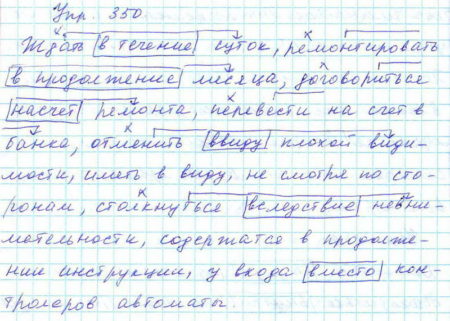 Упр. 350
Ждать в течение суток, ремонтировать
в продолжение месяца, договориться
насчет ремонта, перевести на счет в
банка, отменить ввиду плохой види-
мости, иметь в виду, не смотря по сто-
ронам, столкнуться вследствие невни-
мательности, содержатся в продолже-
нии инструкции, у входа вместо кон-
тролеров автоматы.